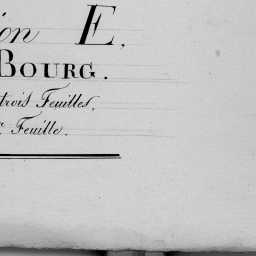 ion E.
BOURG.
trois Feuilles.
e Feuille.